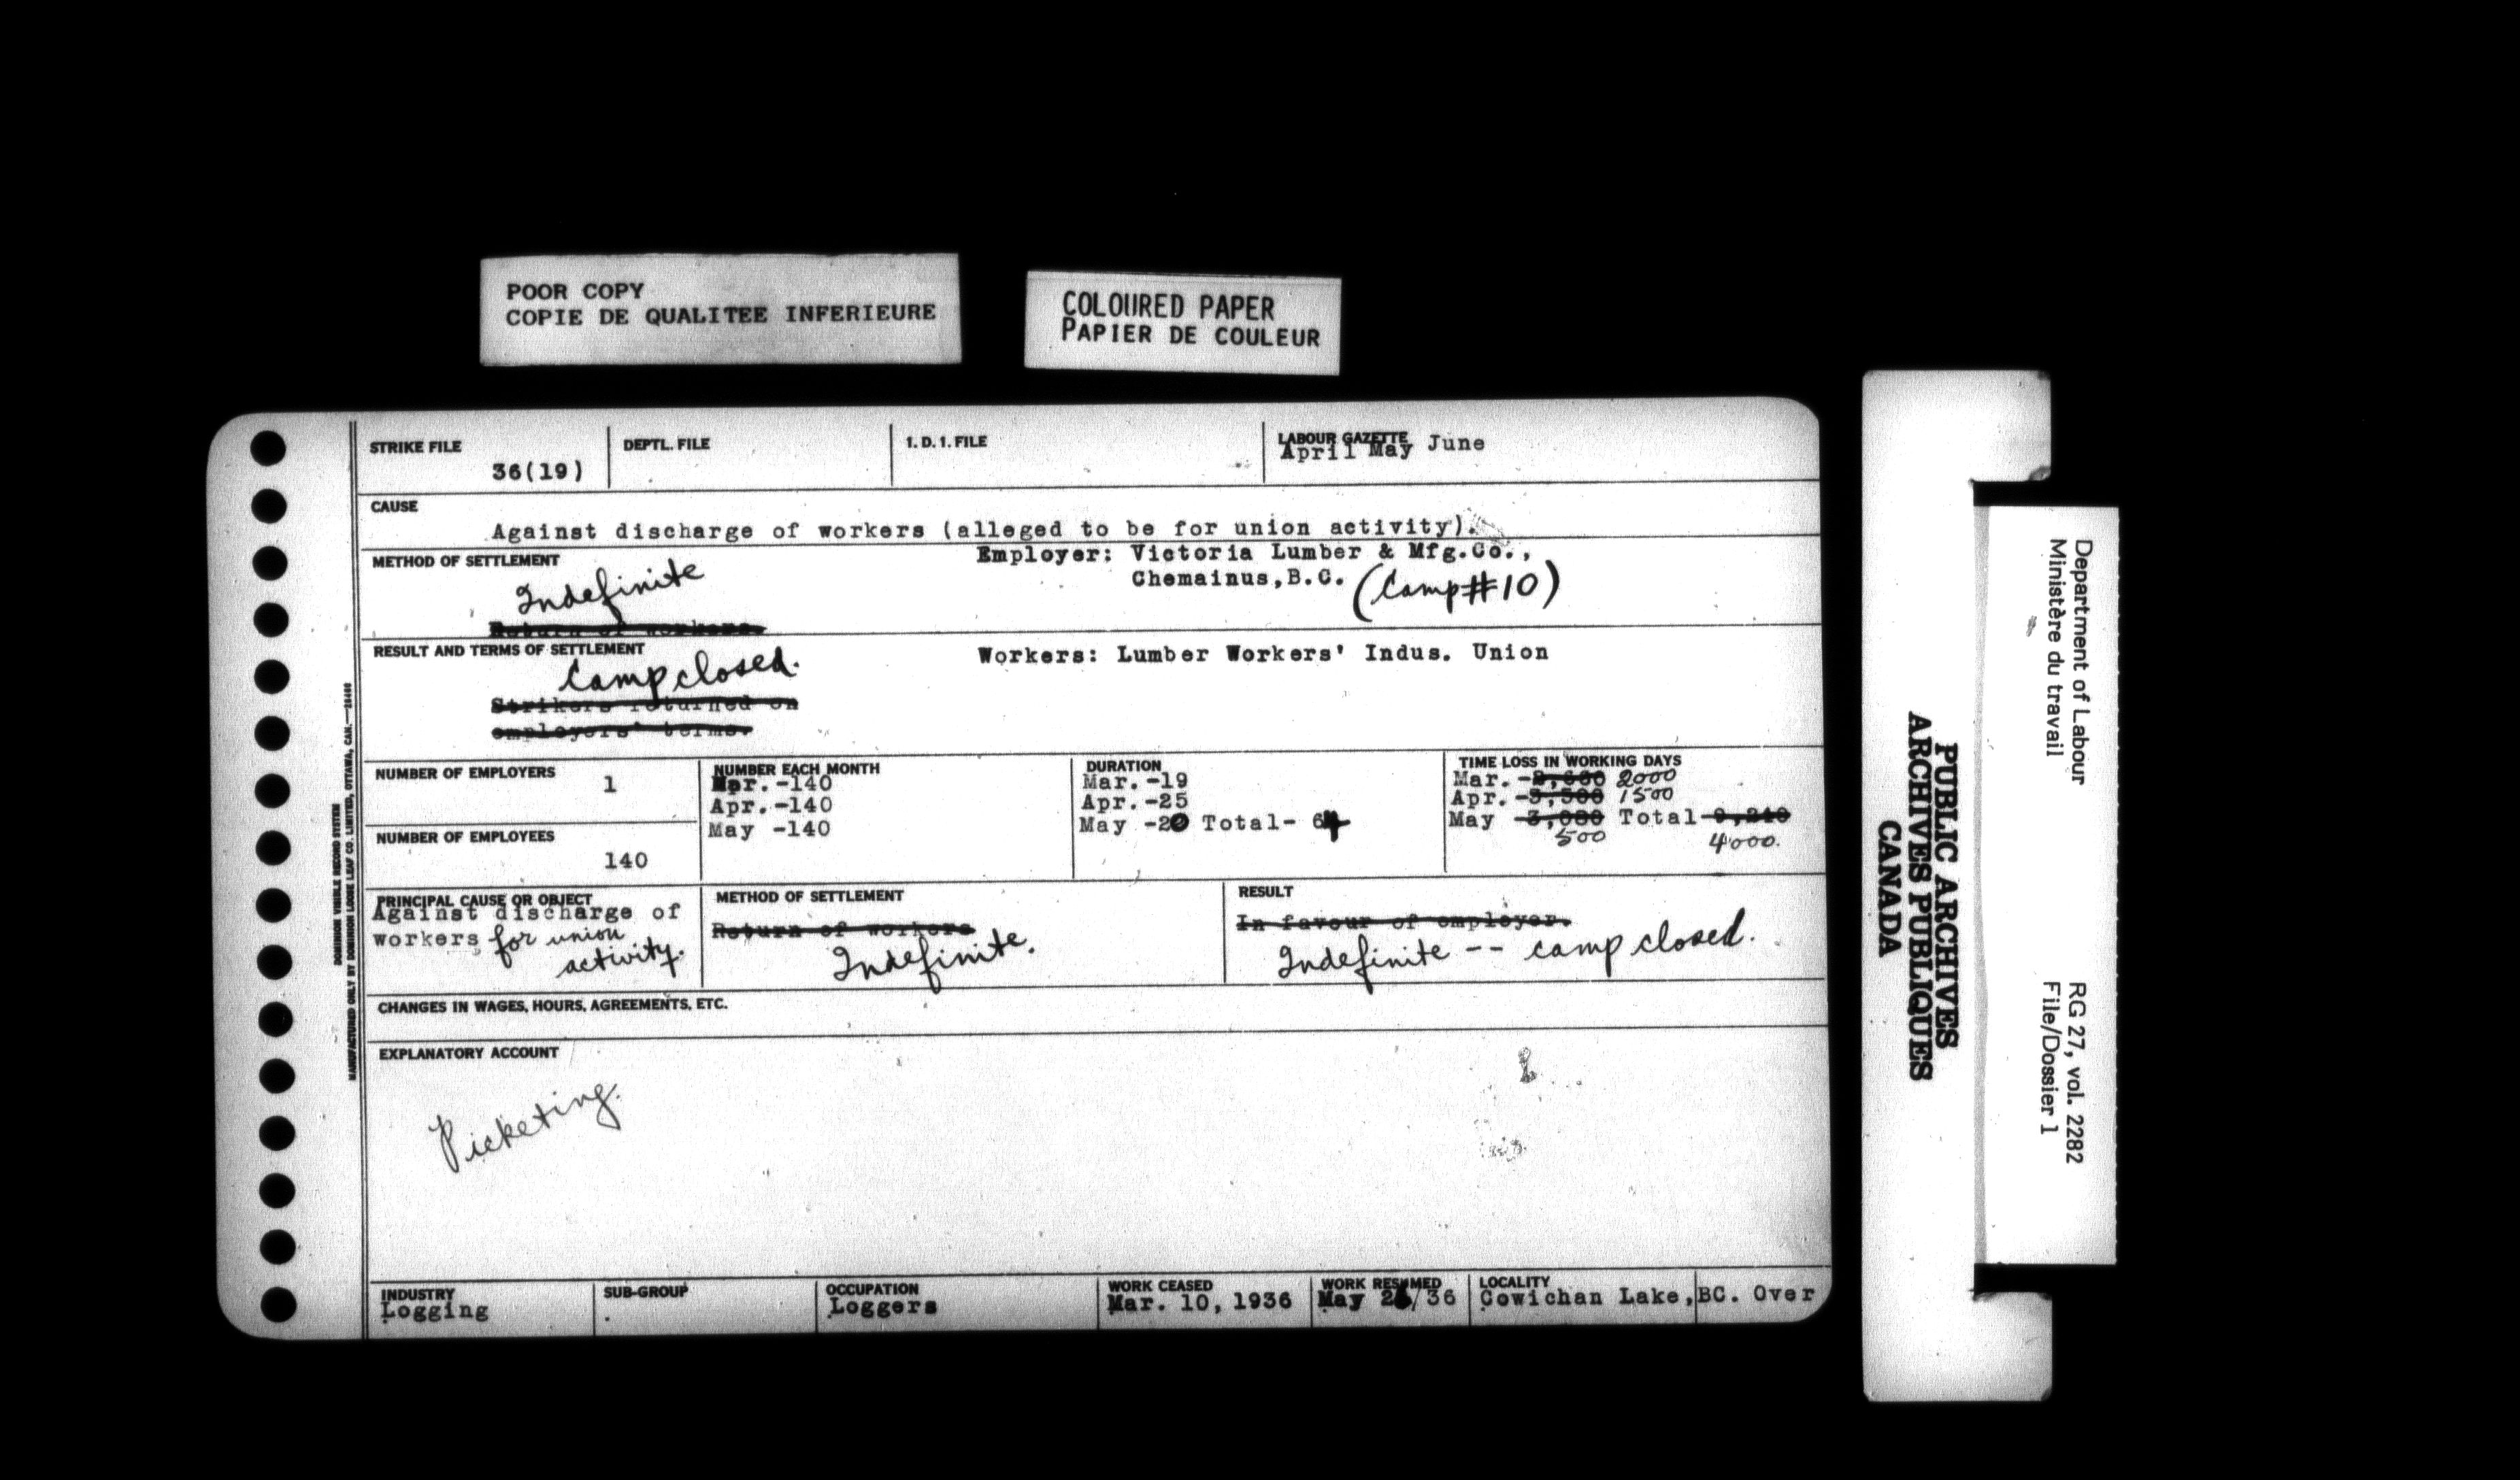 POOR COPY
COPIE DE QUALITEE INFERIEURE
COLOURED PAPER
PAPIER DE COULEUR
STRIKE FILE
36(19)
DEPTL. FILE
I. D. I. FILE
LABOUR GAZETTE
April May June
CAUSE
Against discharge of workers (alleged to be for union activity).
METHOD OF SETTLEMENT
Indefinite
Return of workers.
Employer: Victoria Lumber & Mfg.Co.,
Chemainus,B.C. (Camp #10)
RESULT AND TERMS OF SETTLEMENT
Camp closed.
Strikers returned on
employers' terms.
Workers: Lumber Workers' Indus. Union
NUMBER OF EMPLOYERS
1
NUMBER OF EMPLOYEES
140
NUMBER EACH MONTH
Mar. -140
Apr. -140
May -140
DURATION
Mar. -19
Apr. -25
May -20 Total- 64
TIME LOSS IN WORKING DAYS
Mar. - 2000
Apr. -3,500 1500
May 3,080 Total
500 4000.
PRINCIPAL CAUSE OR OBJECT
Against discharge of
workers for union
activity.
METHOD OF SETTLEMENT
Return of workers
Indefinite.
RESULT
In favour of employer.
Indefinite -- camp closed.
CHANGES IN WAGES, HOURS, AGREEMENTS, ETC.
EXPLANATORY ACCOUNT
Picketing.
INDUSTRY
Logging
SUB-GROUP
OCCUPATION
Loggers
WORK CEASED
Mar. 10, 1936
WORK RESUMED
May 2 /36
LOCALITY
Cowichan Lake, BC. Over
DOMINION VISIBLE RECORD SYSTEM
MANUFACTURED ONLY BY DOMINION LOOSE LEAF CO. LIMITED, OTTAWA, CAN.
PUBLIC ARCHIVES
ARCHIVES PUBLIQUES
CANADA
Department of Labour
Ministère du travail
RG 27, vol. 2282
File/Dossier 1